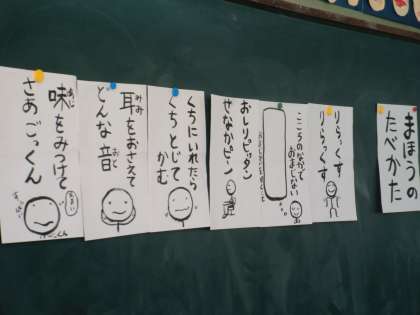 まほうの
たべかた
りらっくす
りらっくす
こころのなかで
おまじない
おしりピッタン
せなかピーン
くちにいれたら
くちとじて
かむ
耳をおさえて
みみ
どんな音
おと
味をみつけて
あじ
さあごっくん